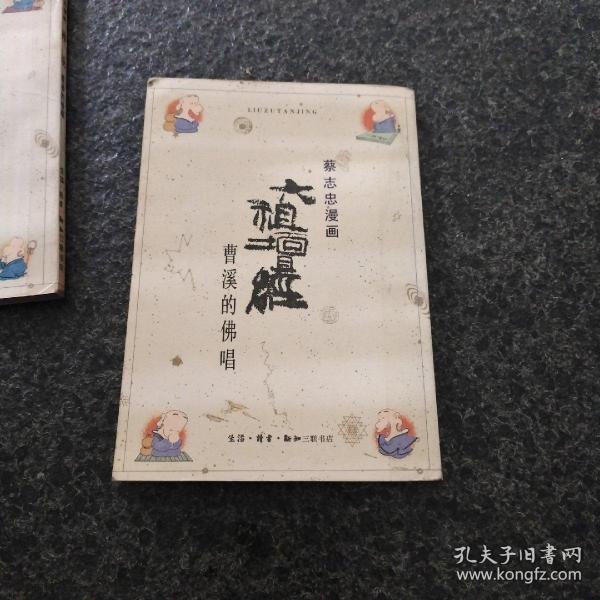 LIUZUTANJING
蔡志忠漫画
六祖坛经
曹溪的佛唱
生活·读书·新知三联书店
孔夫子旧书网
www.kongfz.com